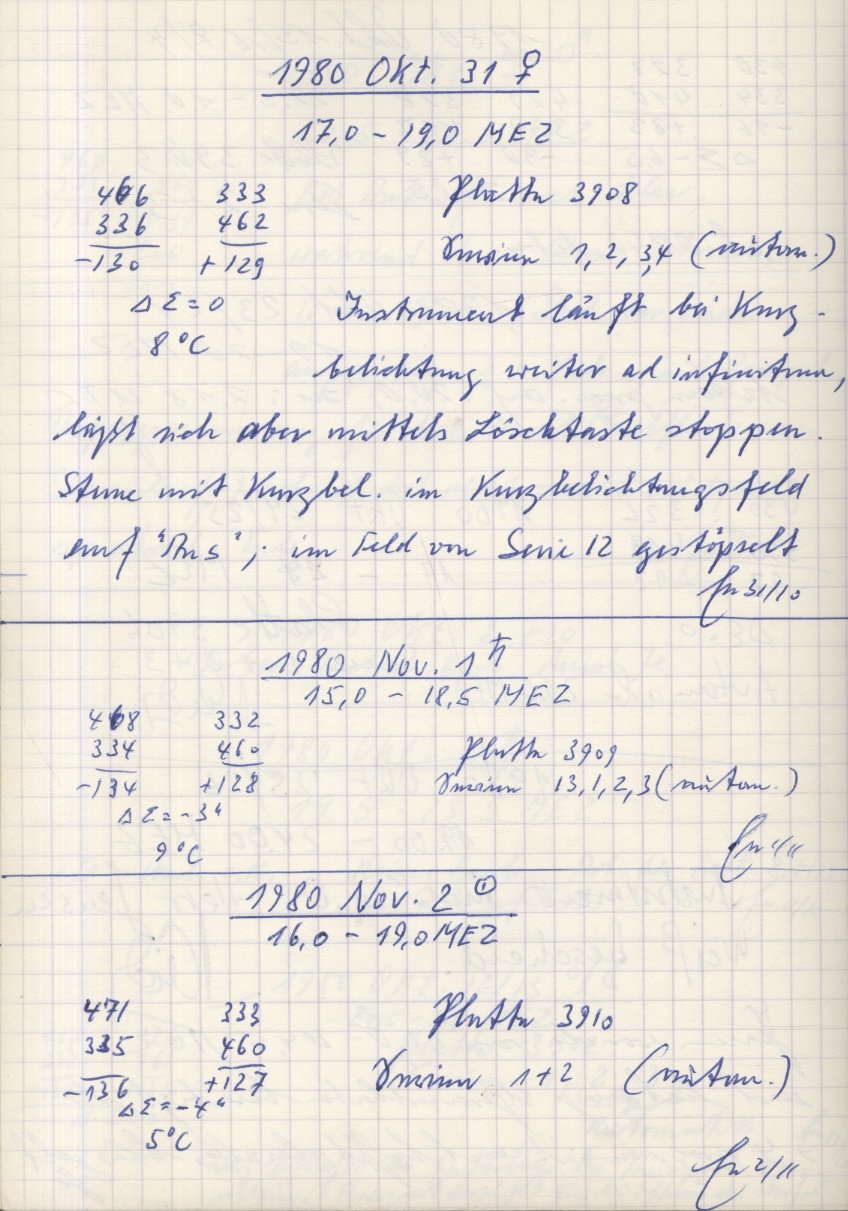 1980 Okt. 31 ♀
17,0 – 19,0 MEZ
466 333 Platte 3908
336 462
-130 +129 Serien 1, 2, 3,4 (autom.)
Δ Σ = 0 Instrument läuft bei Kurz-
8°C
belichtung weiter ad infinitum,
läßt sich aber mittels Löschtaste stoppen.
Sterne mit Kurzbel. im Kurzbelichtungsfeld
auf "Aus"; im Feld von Serie 12 gestöpselt
31/10
1980 Nov. 1 ♄
15,0 – 18,5 MEZ
468 332
334 460 Platte 3909
-134 +128 Serien 13,1,2,3 (autom.)
Δ Σ = -3"
9°C
1980 Nov. 2 ☉
16,0 – 19,0 MEZ
471 333 Platte 3910
335 460
-136 +127 Serien 1+2 (autom.)
Δ Σ = -4"
5°C
2/11